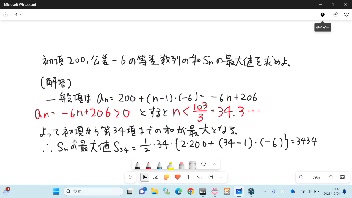 Microsoft Whiteboard
初項200,公差-6の等差数列の和Snの最大値を求めよ.
(解答)
一般項は an=200+(n-1)·(-6)=-6n+206
an=-6n+206>0 とすると n<103/3=34.3···
よって初項から第34項までの和が最大となる.
∴ Snの最大値 S34=1/2·34·{2·200+(34-1)·(-6)}=3434